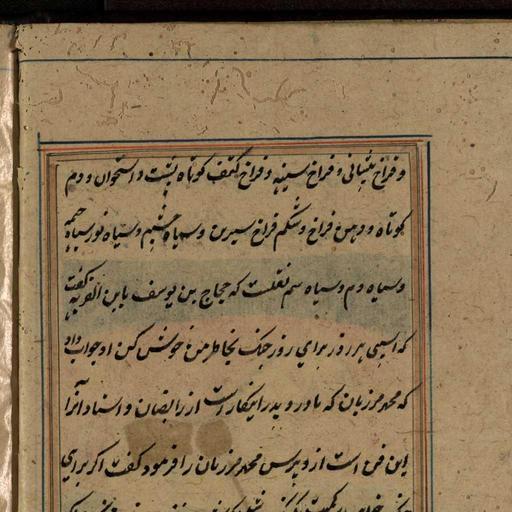 و فراخ پیشانی و فراخ سینه و فراخ کتف کوتاه پشت و استخوان و دم
کوتاه و دهن فراخ و شکم فراخ سرین و سیاه چشم و سیاه
و سیاه دم و سیاه سم نقلست که حجاج بن یوسف بابن القریه گفت
که اسپی هر روز برای روز جنک بخاطر من خوش کن او جواب داد
که محمد مرزبان که مادر و پدر اینکار است از رابضان و استاد آنرا
این فن است از و پرس محمد مرزبان را فرمود گفت اگر برای